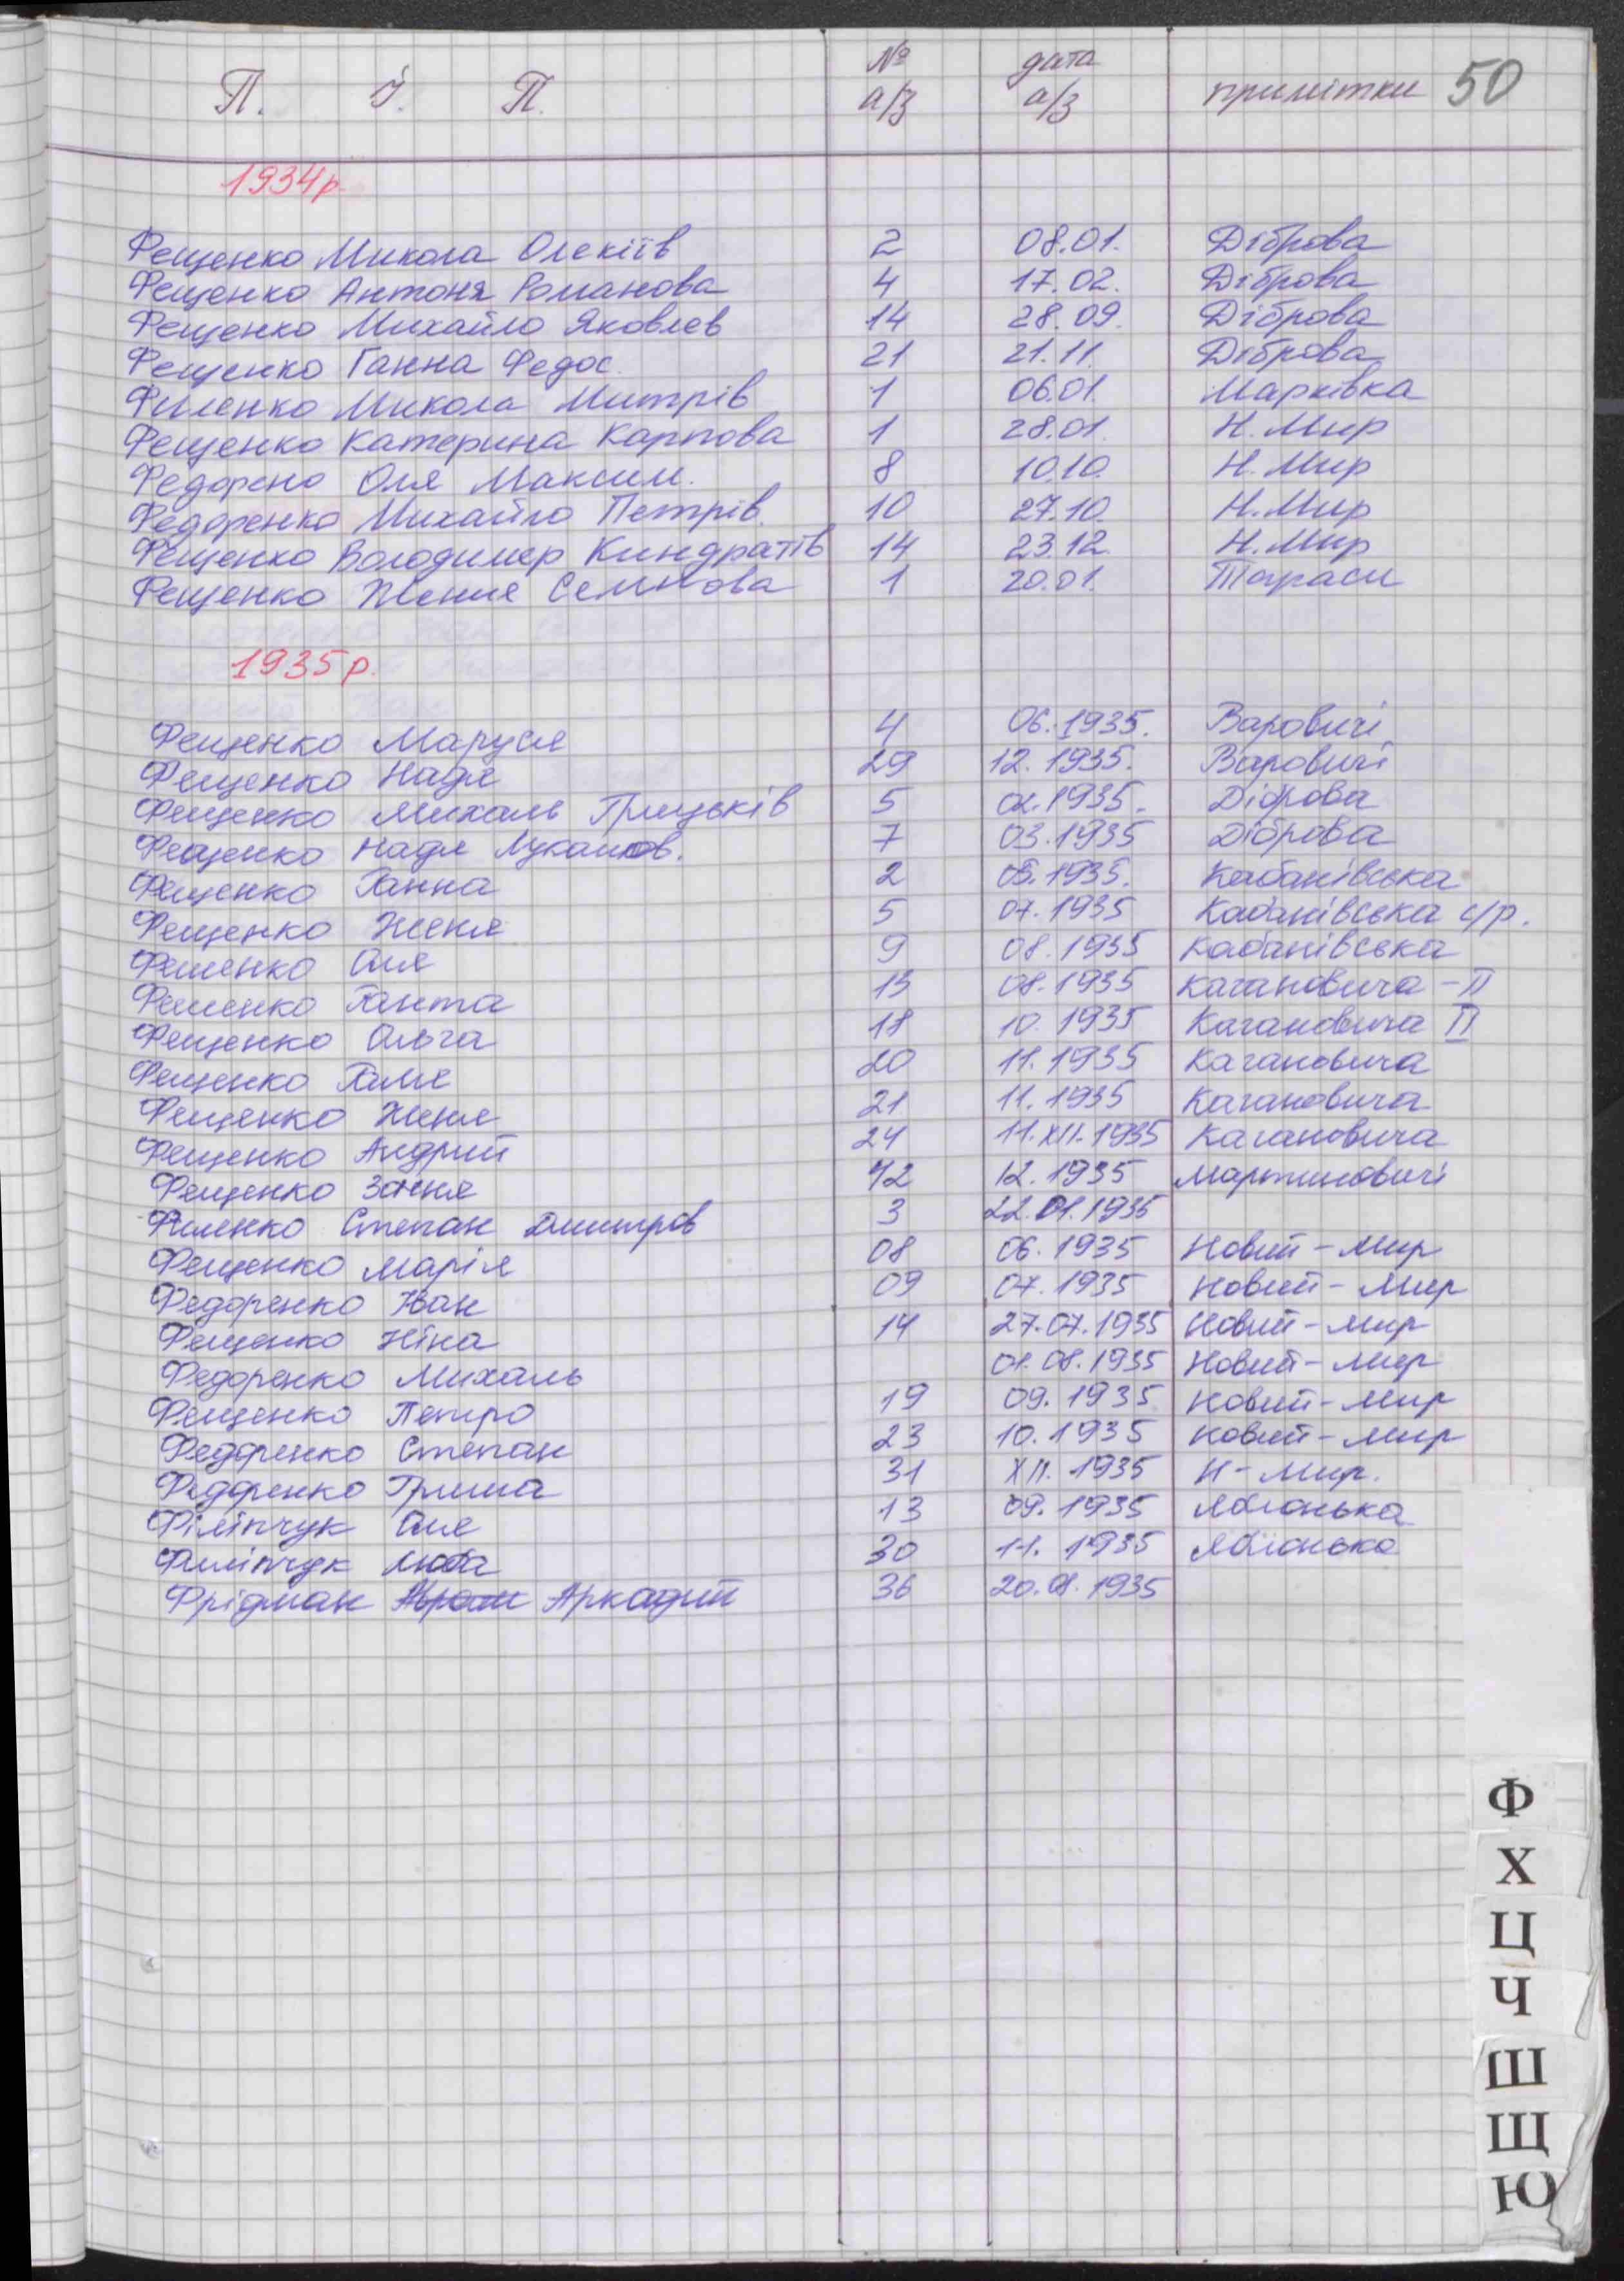 П. І. П. № а/з дата а/з примітки 50
1934р.
Фещенко Микола Олексіїв 2 08.01. Діброва
Фещенко Антоня Романова 4 17.02. Діброва
Фещенко Михайло Яковлев 14 28.09. Діброва
Фещенко Ганна Федос. 21 21.11. Діброва
Филенко Микола Митрів 1 06.01. Марківка
Фещенко Катерина Карпова 1 28.01. Н. Мир
Федорено Оля Максим. 8 10.10. Н. Мир
Федоренко Михайло Петрів. 10 27.10. Н. Мир
Фещенко Володимер Киндратів 14 23.12. Н. Мир
Фещенко Женя Семнова 1 20.01. Тараси
1935р.
Фещенко Маруся 4 06.1935. Варовичі
Фещенко Надя 29 12.1935. Варовичі
Фещенко Михаль Грицьків 5 02.1935. Діброва
Фещенко Надя 7 03.1935 Діброва
Фещенко Ганна 2 05.1935. Кабанівська
Фещенко Женя 5 07.1935 Кабанівська с/р.
Фещенко Оля 9 08.1935 Кабанівська
Фещенко 13 08.1935 Кагановича - II
Фещенко Ольга 18 10.1935 Кагановича II
Фещенко Галя 20 11.1935 Кагановича
Фещенко Женя 21 11.1935 Кагановича
Фещенко Андрий 24 11.XII.1935 Кагановича
Фещенко 42 12.1935 Мартиновичі
Филенко Степан Дмитров 3 22.01.1935
Фещенко Марія 08 06.1935 Новий - Мир
Федоренко Іван 09 07.1935 Новий - Мир
Фещенко Ніна 14 27.07.1935 Новий - Мир
Федоренко Михаль 01.08.1935 Новий - Мир
Фещенко Петро 19 09.1935 Новий - Мир
Федоренко Степан 23 10.1935 Новий - Мир
Федоренко Гриша 31 XII.1935 Н - Мир.
Філіпчук Оля 13 09.1935 Яблонька
Филіпчук Люба 30 11.1935 Яблонька
Фрідман Аркадий 36 20.08.1935
Ф
Х
Ц
Ч
Ш
Щ
Ю